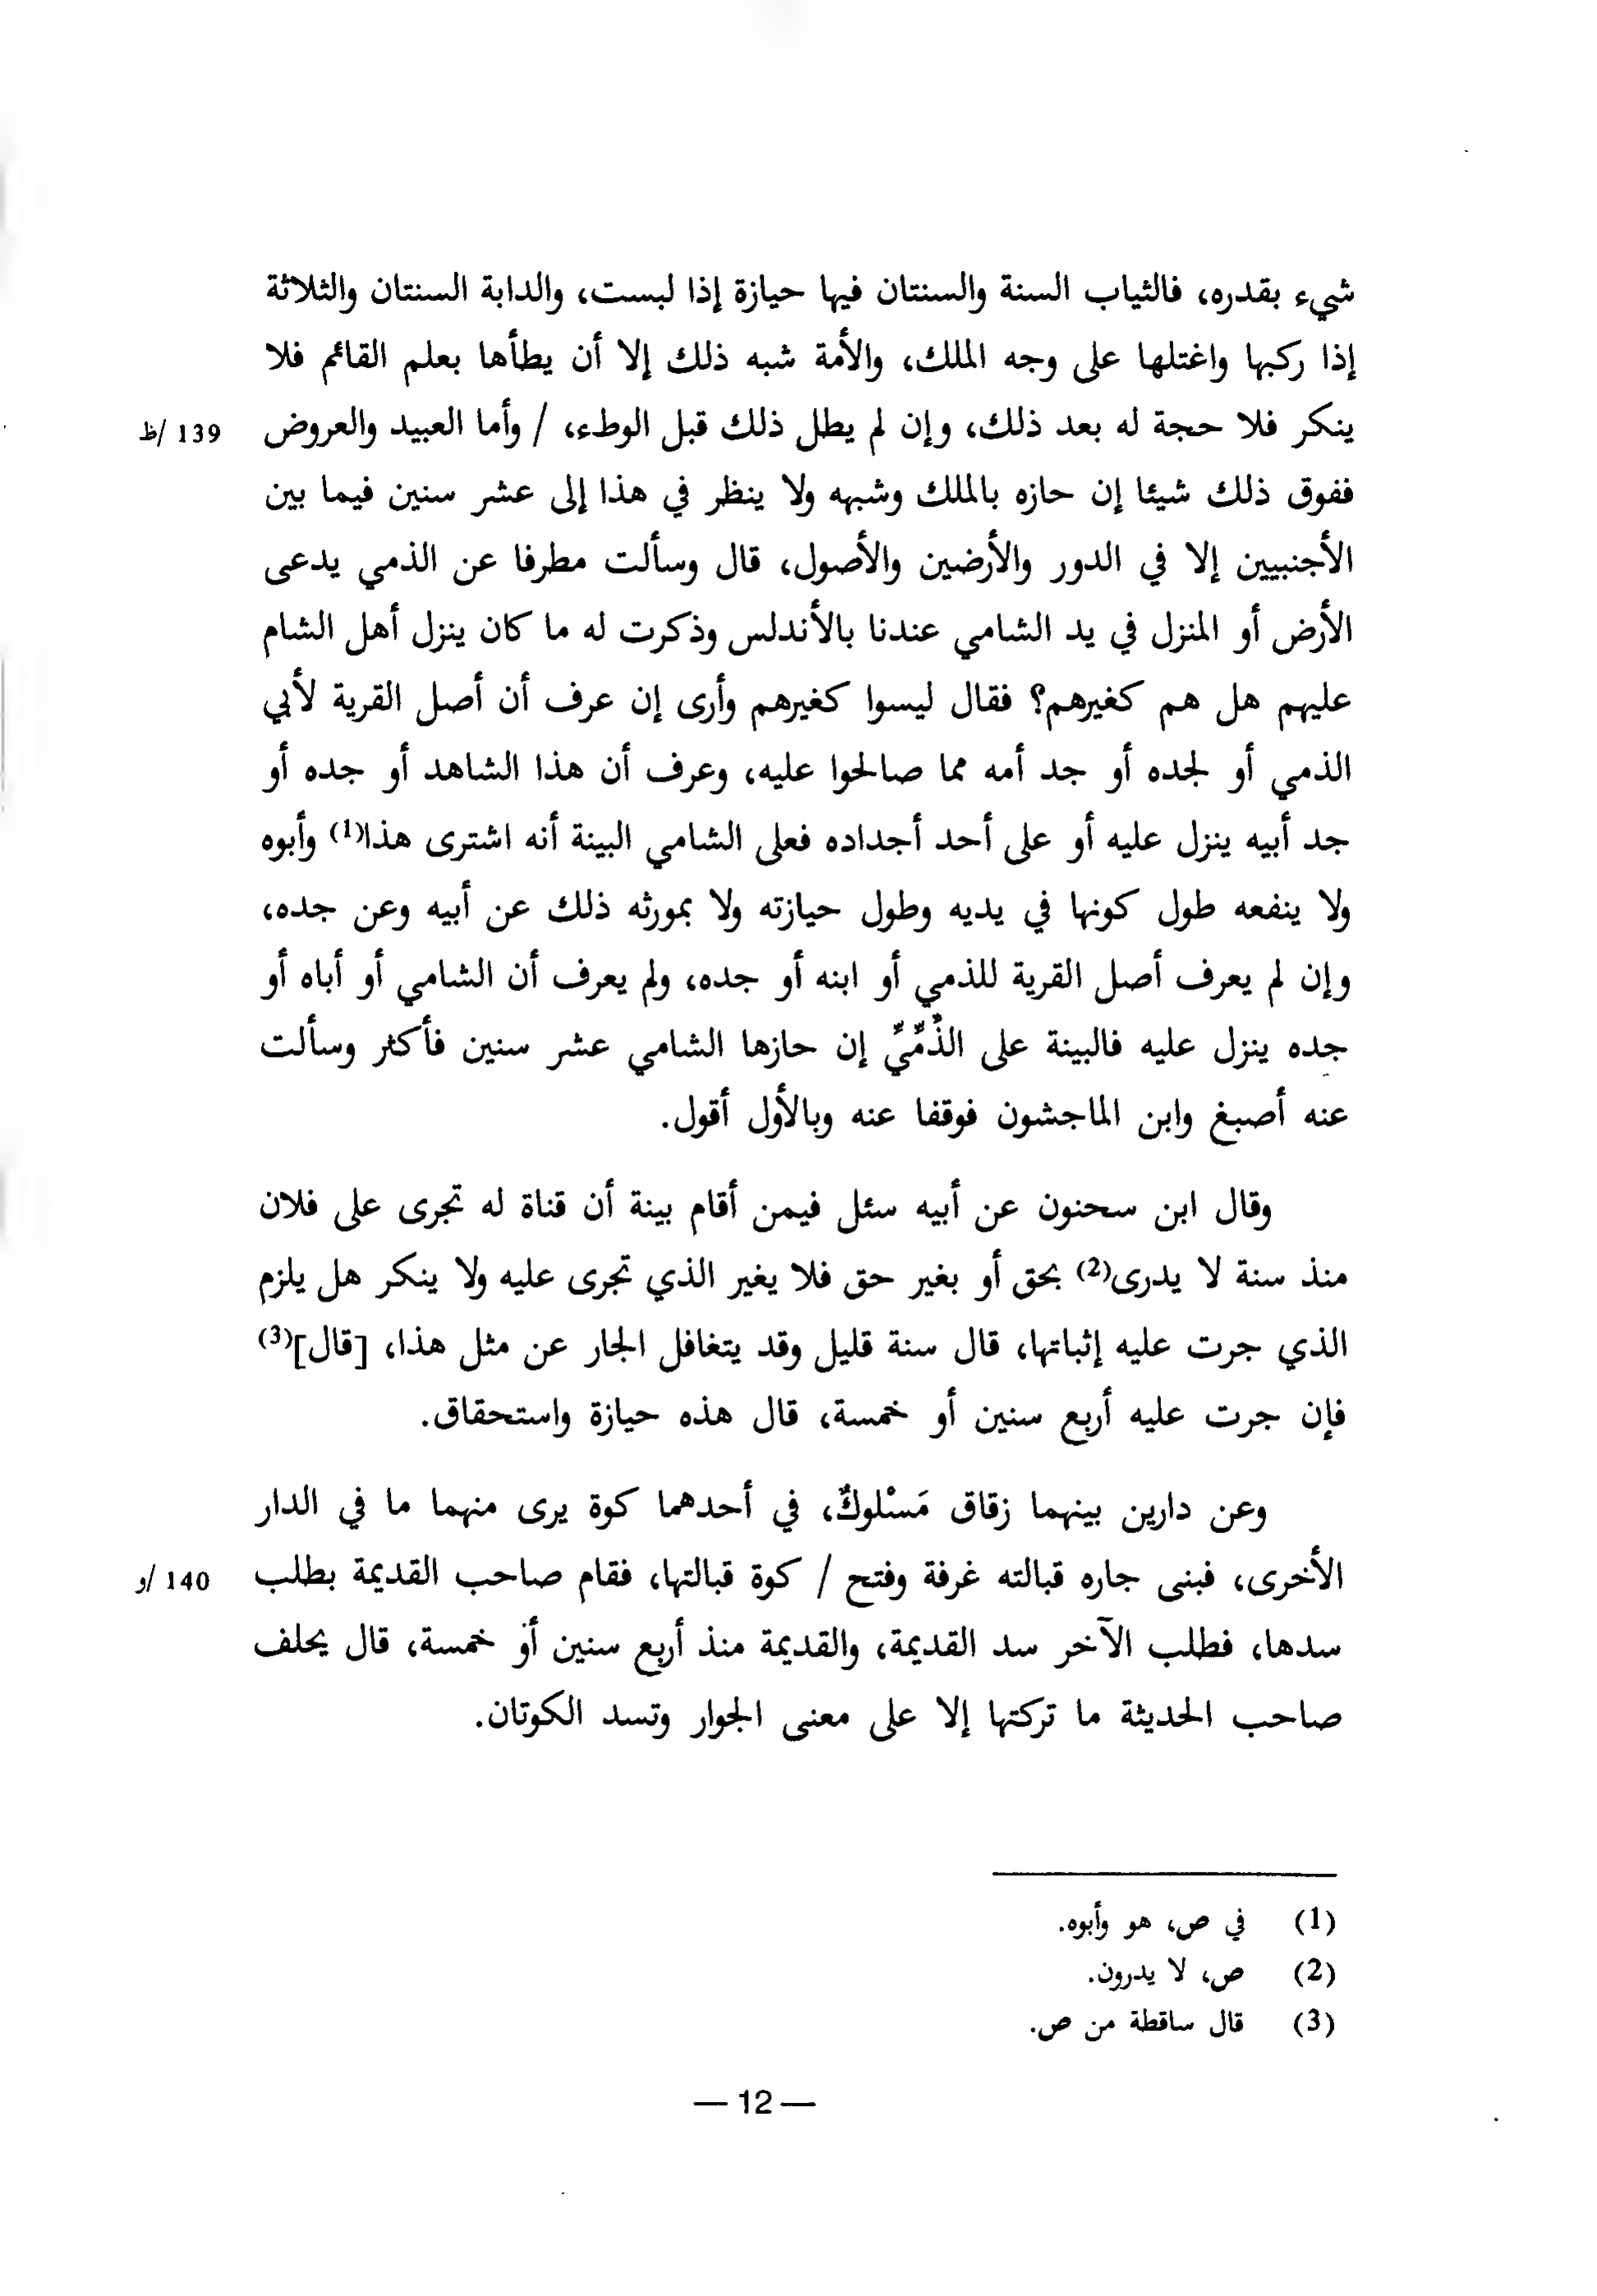 شيء بقدره، فالثياب السنة والسنتان فيها حيازة إذا لبست، والدابة السنتان والثلاثة
إذا ركبها واغتلها على وجه الملك، والأمة شبه ذلك إلا أن يطأها بعلم القائم فلا
ينكر فلا حجة له بعد ذلك، وإن لم يطل ذلك قبل الوطء، / وأما العبيد والعروض 139 /ظ
ففوق ذلك شيئا إن حازه بالملك وشبهه ولا ينظر في هذا إلى عشر سنين فيما بين
الأجنبيين إلا في الدور والأرضين والأصول، قال وسألت مطرفا عن الذمي يدعى
الأرض أو المنزل في يد الشامي عندنا بالأندلس وذكرت له ما كان ينزل أهل الشام
عليهم هل هم كغيرهم؟ فقال ليسوا كغيرهم وأرى إن عرف أن أصل القرية لأبي
الذمي أو لجده أو جد أمه مما صالحوا عليه، وعرف أن هذا الشاهد أو جده أو
جد أبيه ينزل عليه أو على أحد أجداده فعلى الشامي البينة أنه اشترى هذا(1) وأبوه
ولا ينفعه طول كونها في يديه وطول حيازته ولا بمورثه ذلك عن أبيه وعن جده،
وإن لم يعرف أصل القرية للذمي أو ابنه أو جده، ولم يعرف أن الشامي أو أباه أو
جده ينزل عليه فالبينة على الذُمِّيِّ إن حازها الشامي عشر سنين فأكثر وسألت
عنه أصبغ وابن الماجشون فوقفا عنه وبالأول أقول.
وقال ابن سحنون عن أبيه سئل فيمن أقام بينة أن قناة له تجرى على فلان
منذ سنة لا يدرى(2) بحق أو بغير حق فلا يغير الذي تجرى عليه ولا ينكر هل يلزم
الذي جرت عليه إثباتها، قال سنة قليل وقد يتغافل الجار عن مثل هذا، [قال](3)
فإن جرت عليه أربع سنين أو خمسة، قال هذه حيازة واستحقاق.
وعن دارين بينهما زقاق مَسْلوكٌ، في أحدهما كوة يرى منهما ما في الدار
الأخرى، فبنى جاره قبالته غرفة وفتح / كوة قبالتها، فقام صاحب القديمة بطلب 140 /و
سدها، فطلب الآخر سد القديمة، والقديمة منذ أربع سنين أو خمسة، قال يحلف
صاحب الحديثة ما تركتها إلا على معنى الجوار وتسد الكوتان.
(1) في ص، هو وأبوه.
(2) ص، لا يدرون.
(3) قال ساقطة من ص.
— 12 —